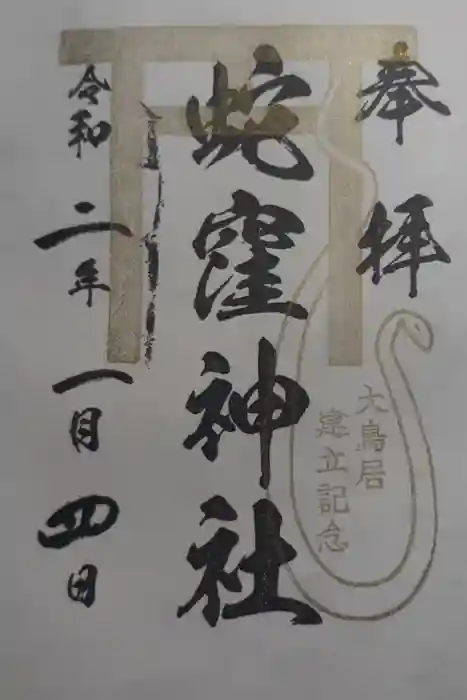 奉拝
大鳥居
建立記念
蛇窪神社
令和二年一月四日